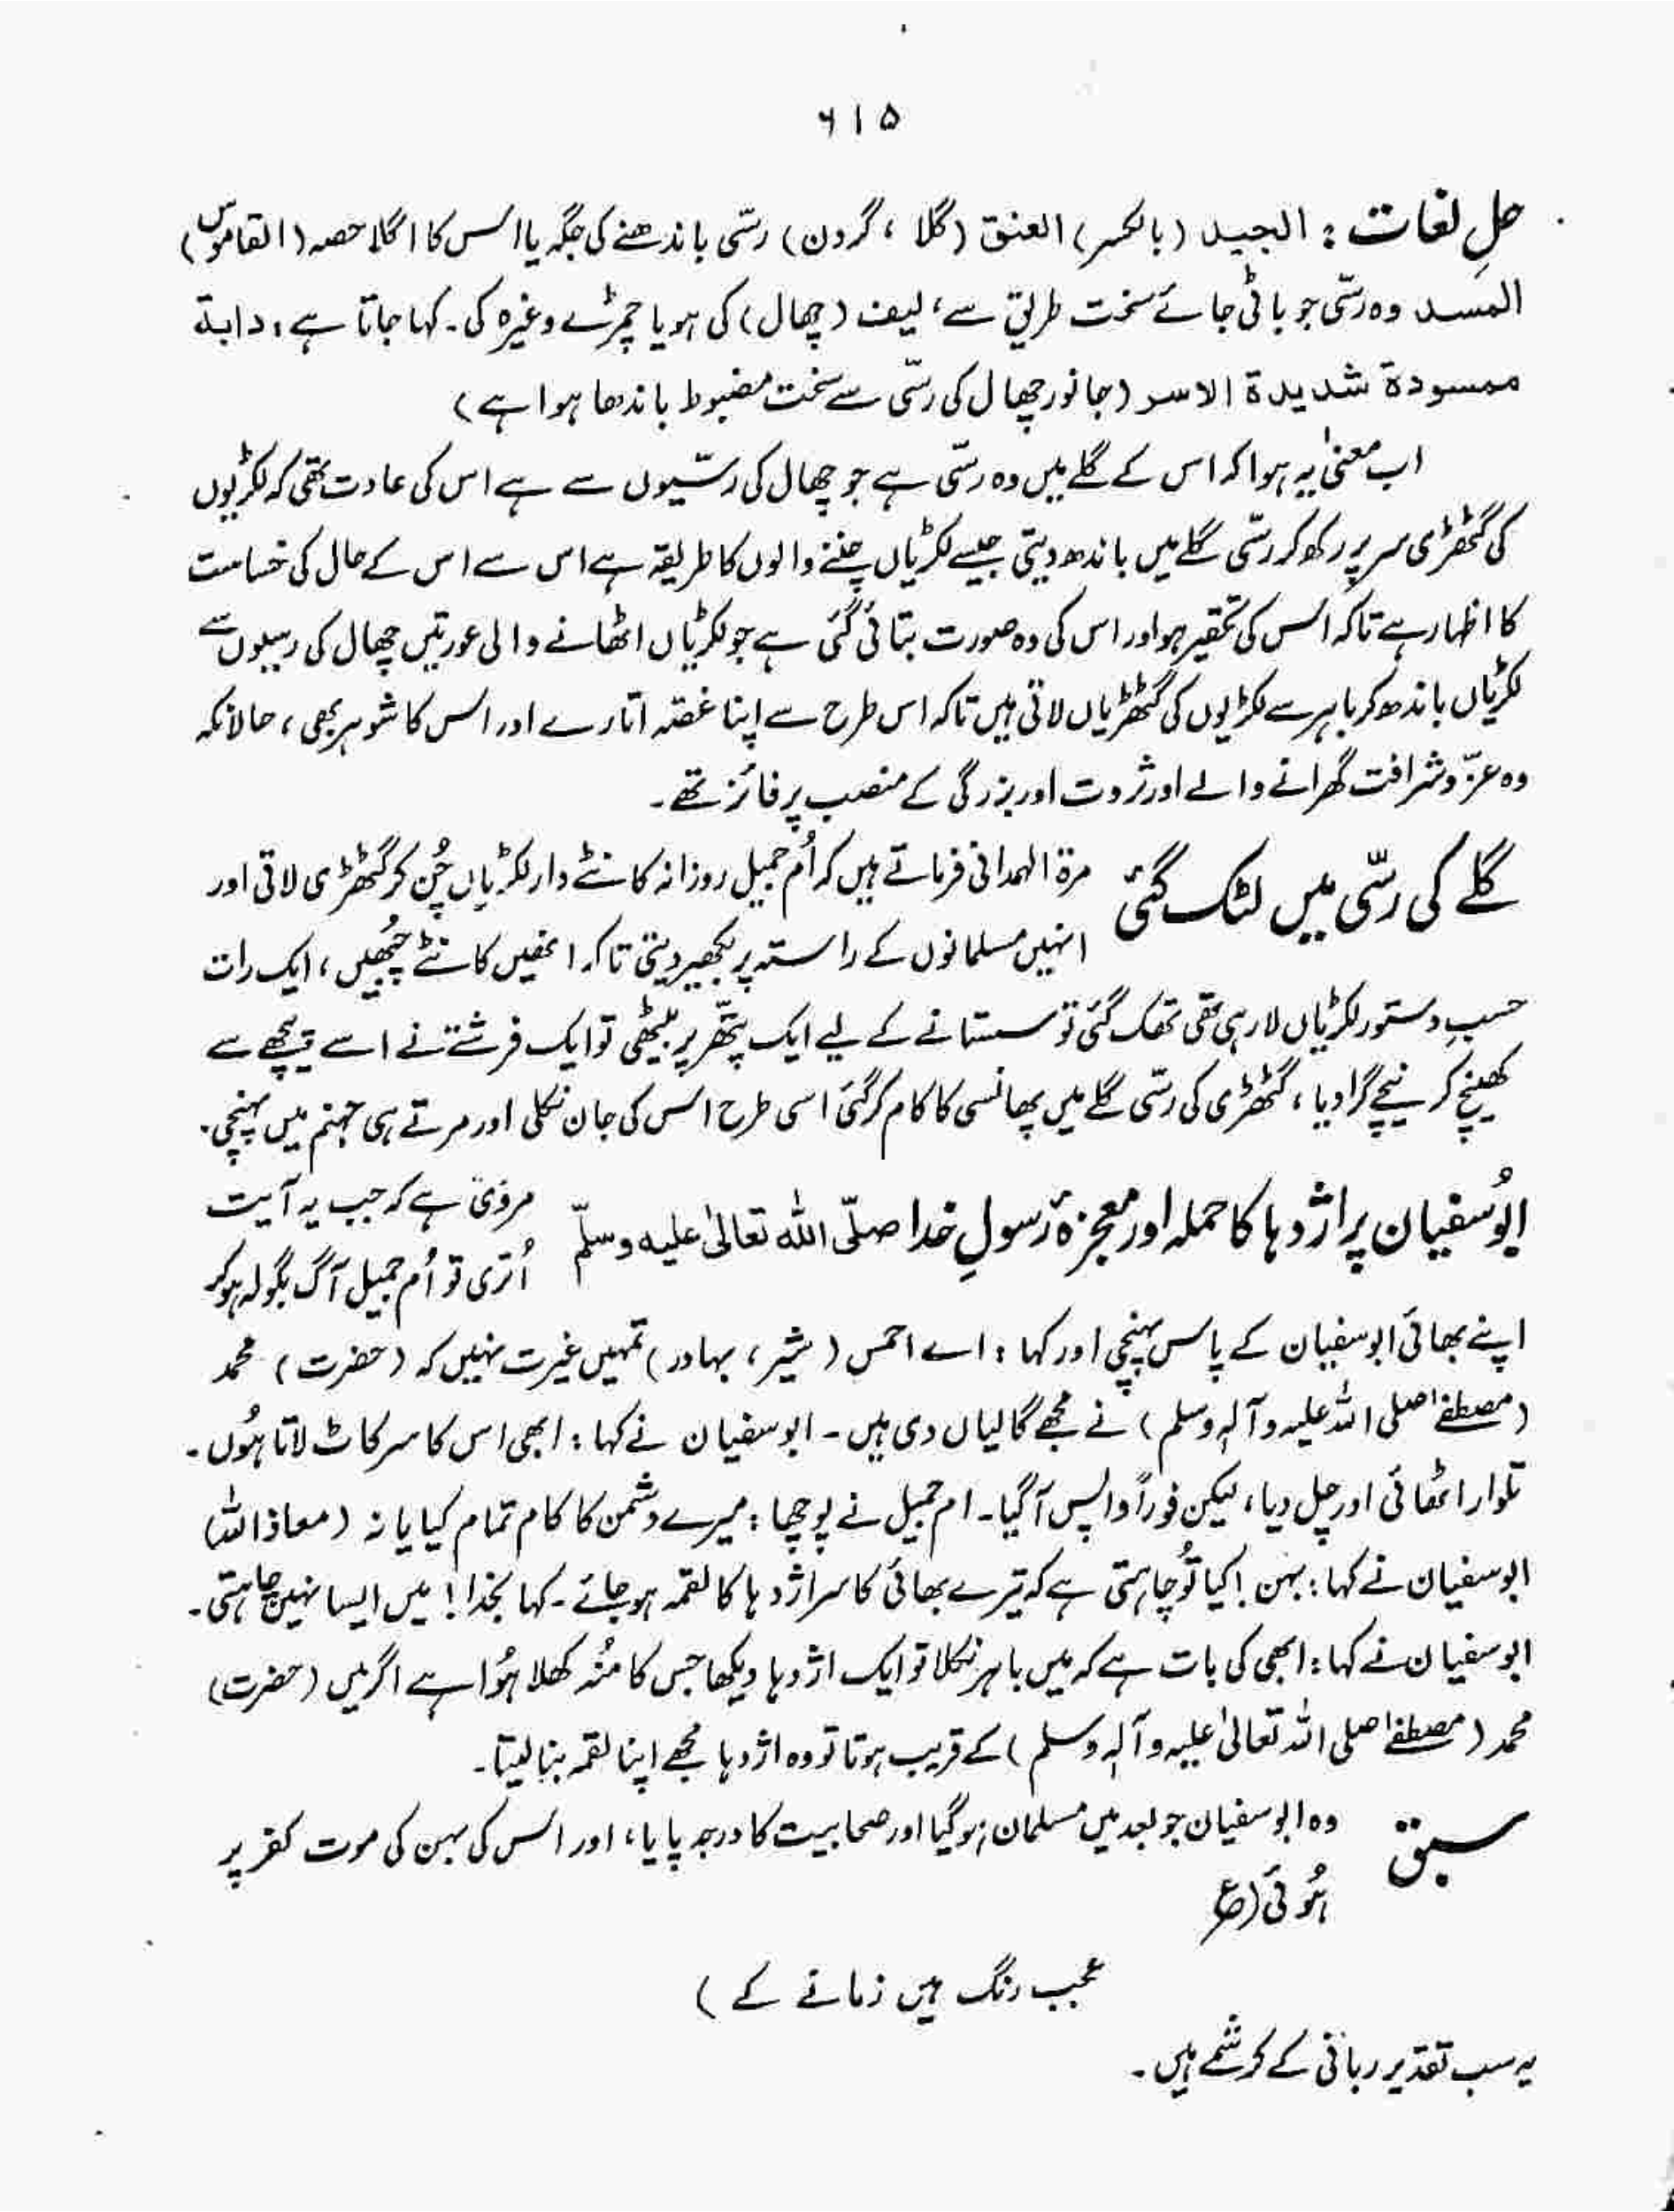 ۶۱۵
حلِ لغات : الجید (بالکسر) العنق (گلا ، گردن) رسّی باندھنے کی جگہ یا اس کا اگلا حصہ (القاموس)
المسد وہ رسّی جو باٹی جائے سخت طریق سے ، لیف (چھال) کی ہو یا چمڑے وغیرہ کی ۔ کہا جاتا ہے : دابة
ممسودة شدیدة الاسر (جانور چھال کی رسّی سے سخت مضبوط باندھا ہوا ہے)
اب معنیٰ یہ ہوا کہ اس کے گلے میں وہ رسّی ہے جو چھال کی رسّیوں سے ہے اس کی عادت تھی کہ لکڑیوں
کی گٹھڑی سر پر رکھ کر رسّی گلے میں باندھ دیتی جیسے لکڑیاں چننے والوں کا طریقہ ہے اس سے اس کے حال کی خساست
کا اظہار ہے تاکہ اس کی تحقیر ہو اور اس کی وہ صورت بتائی گئی ہے جو لکڑیاں اٹھانے والی عورتیں چھال کی رسیوں سے
لکڑیاں باندھ کر باہر سے لکڑیوں کی گٹھڑیاں لاتی ہیں تاکہ اس طرح سے اپنا غصّہ اتارے اور اس کا شوہر بھی ، حالانکہ
وہ عزّ و شرافت گھرانے والے اور ثروت اور بزرگی کے منصب پر فائز تھے ۔
گلے کی رسّی میں لٹک گئی
مرۃ الہمدانی فرماتے ہیں کہ اُم جمیل روزانہ کانٹے دار لکڑیاں چُن کر گٹھڑی لاتی اور
انہیں مسلمانوں کے راستہ پر بکھیر دیتی تاکہ انھیں کانٹے چُبھیں ، ایک رات
حسبِ دستور لکڑیاں لا رہی تھی تھک گئی تو سستانے کے لیے ایک پتھّر پر بیٹھی تو ایک فرشتے نے اسے پیچھے سے
کھینچ کر نیچے گرا دیا ، گٹھڑی کی رسّی گلے میں پھانسی کا کام کر گئی اسی طرح اس کی جان نکلی اور مرتے ہی جہنم میں پہنچی ۔
ابُوسفیان پر اژدہا کا حملہ اور معجزۂ رسولِ خدا صلّی اللہ تعالیٰ علیہ وسلّم
مروی ہے کہ جب یہ آیت
اُتری تو اُم جمیل آگ بگولہ ہو کر
اپنے بھائی ابوسفیان کے پاس پہنچی اور کہا : اے احمس (شیر ، بہادر) تمہیں غیرت نہیں کہ (حضرت) محمد
(مصطفےٰ صلی اللہ علیہ وآلہٖ وسلم) نے مجھے گالیاں دی ہیں ۔ ابوسفیان نے کہا : ابھی اس کا سر کاٹ لاتا ہُوں ۔
تلوار اٹھائی اور چل دیا ، لیکن فوراً واپس آگیا ۔ ام جمیل نے پوچھا : میرے دشمن کا کام تمام کیا یا نہ (معاذ اللہ)
ابوسفیان نے کہا : بہن ! کیا تُو چاہتی ہے کہ تیرے بھائی کا سر اژدہا کا لقمہ ہو جائے ۔ کہا بخدا ! میں ایسا نہیں چاہتی ۔
ابوسفیان نے کہا : ابھی کی بات ہے کہ میں باہر نکلا تو ایک اژدہا دیکھا جس کا مُنہ کھلا ہُوا ہے اگر میں (حضرت)
محمد (مصطفےٰ صلی اللہ تعالیٰ علیہ وآلہٖ وسلم) کے قریب ہوتا تو وہ اژدہا مجھے اپنا لقمہ بنا لیتا ۔
سبق
وہ ابوسفیان جو بعد میں مسلمان ہوگیا اور صحابیت کا درجہ پایا ، اور اس کی بہن کی موت کفر پر
ہُوئی (ع
عجب رنگ ہیں زمانے کے )
یہ سب تقدیر ربانی کے کرشمے ہیں ۔